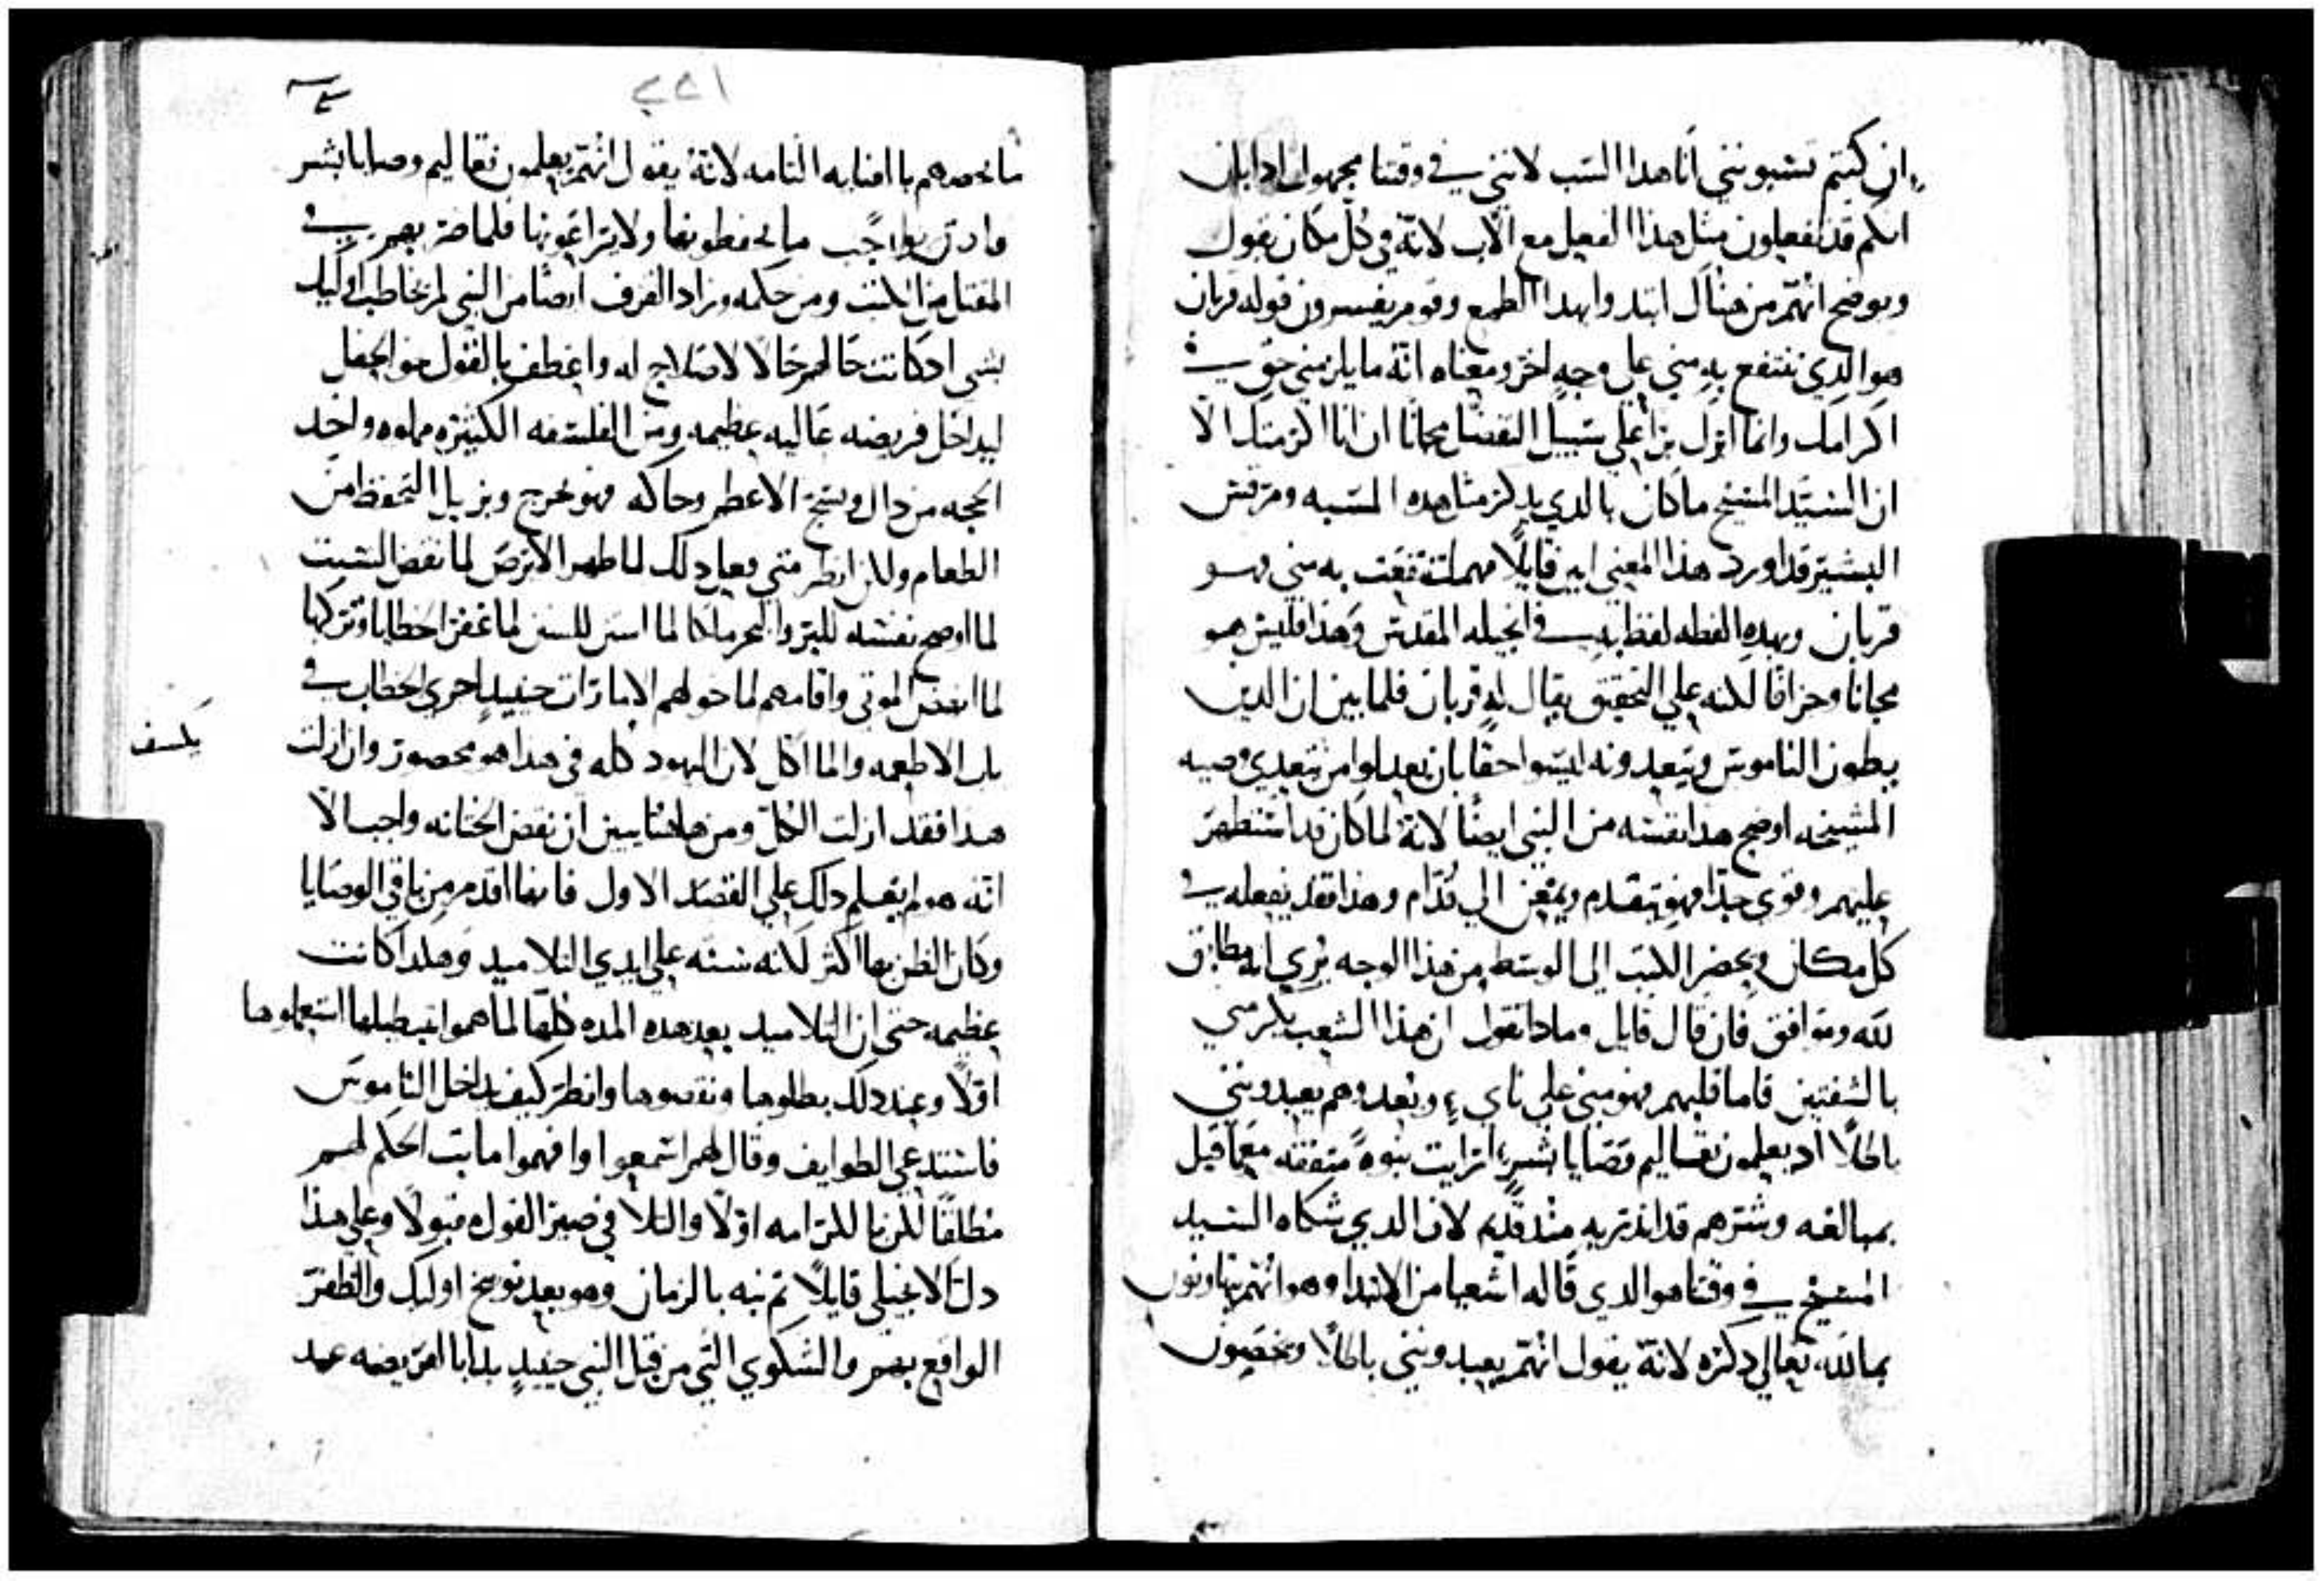 ان كنتم تسبونني أنا هدا السب لانني في وقتنا مجهول ادا بان
انكم قد تفعلون مثل هذا الفعل مع الآب لانة في كل مكان يقول
ويوضح انهم من هناك ابتدوا بهدا الطمع وقوم يفسرون قوله قربان
هو الدي تنتفع به مني علي وجه اخر ومعناه انة ما يلزمني حق في
اكرامك وانما انزل بزا علي سبيل التفضل مجانا ان انا اكرمتك الا
ان السيد المسيح ما كان بالدي يدكر مثل هده السبه ومرقس
البشير قد اورد هذا المعني ابين قايلا مهما انتفعت به مني فهو
قربان وبهده الفطه لفظ به في انجيله المقدس وهذا فليس هو
مجانا وجزافا لكنه علي التحقيق يقال له قربان فلما بين ان الدين
يطون الناموس ويتعدونه ليسوا احقا بان يعدلوا من يتعدي وصيه
المشيخه اوضح هدا نفسه من النبي ايضا لانة لما كان قد استظهر
عليهم وقوي جدا فهو يتقدم ويمعن الي قدام وهذا فقد يفعله في
كل مكان ويحضر الكتب الى الوسط من هذا الوجه يري انه مطابق
لله وموافق فان قال قايل وما دا تقول ان هذا الشعب يكرمني
بالشفتين فاما قلبهم فهو مني علي ناي وبعد وهم يعبدونني
باطلا اد يعلمون تعاليم قضايا بشر ارايت نبوه متفقه معما قيل
بمبالغه وشرهم قد اندر به منذ قديم لان الدي شكاه السيد
المسيح في وقتنا هو الدي قاله اشعيا من الابتدا وهو انهم يتهاونون
بما لله تعالي دكره لانة يقول انهم يعبدونني باطلا ويخصون
١٢٢
ما يخصهم بالعنايه التامه لانة يقول انهم يعلمون تعاليم وصايا بشر
فادن بواجب ما يحفطونها ولا يراعونها فلما ضربهم في
المقتل من الكتب ومن حكمه وزاد القرف ايضا من النبي لم يخاطب اوليك
بشي ادكانت حالهم حالا لا صلاح له واعطف بالقول نحو الجفل
ليداخل فريضه عاليه عظيمه ومن الفلسفه الكثيره مملوه واخد
الحجه من داك ونسج الاعطم وحاكه فهو يخرج ويزيل التحفظ من
الطعام ولكن انطر متي فعل دلك لما طهر الابرص لما نقض السبت
لما اوضح نفسه للبر والبحر ملكا لما اسس السنن لما غفر الخطايا وتركها
لما انهض الموتي واقامهم لما خولهم الامارات حينيد اجري الخطاب في
باب الاطعمه والماكل لان اليهود كله في هدا هو محصور وان ازلت
هدا فقد ازلت الكل ومن هاهنا يبين ان نقض الختانه واجب الا
انه هو لم يفعل دلك علي القصد الاول فانها اقدم من باقي الوصايا
وكان الظن بها اكثر لكنه سنه علي ايدي التلاميد وهكدا كانت
عظيمه حتي ان التلاميد بعد هده المده كلها لما هموا بتبطيلها استعملوها
اولا وعند دلك بطلوها ونقضوها وانظر كيف يداخل الناموس
فاستدعي الطوايف وقال لهم اسمعوا وافهموا ما بت الحكم لهم
مطلقا لكن بالكرامه اولا والتلافي صير القول مقبولا وعلي هذا
دل الانجيلي قايلا ثم نبه بالزمان وهو بعد توبيخ اوليك والظفر
الواقع بهم والشكوي التي من قبل النبي حينيد بدا بالفريضه عند